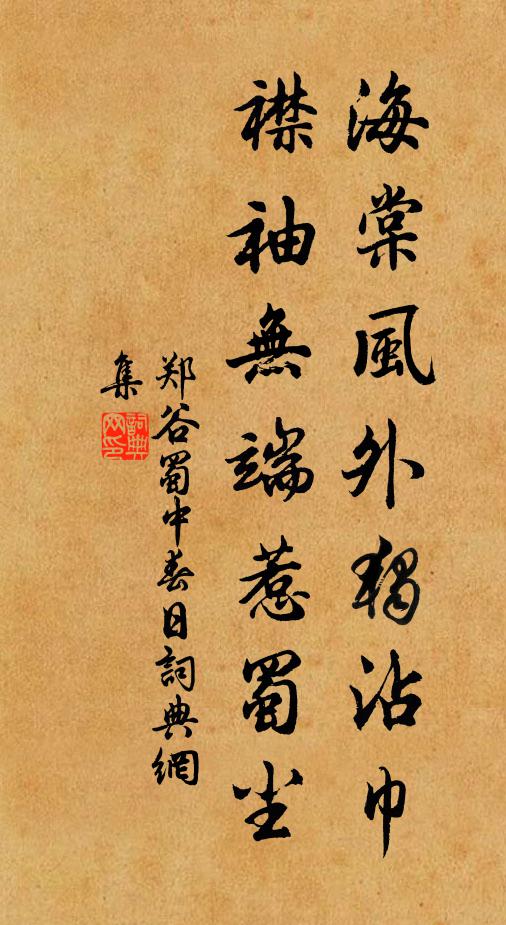 海棠風外獨沾巾
襟袖無端惹蜀尘
郑谷蜀中春日詞典網
集
詞典網印